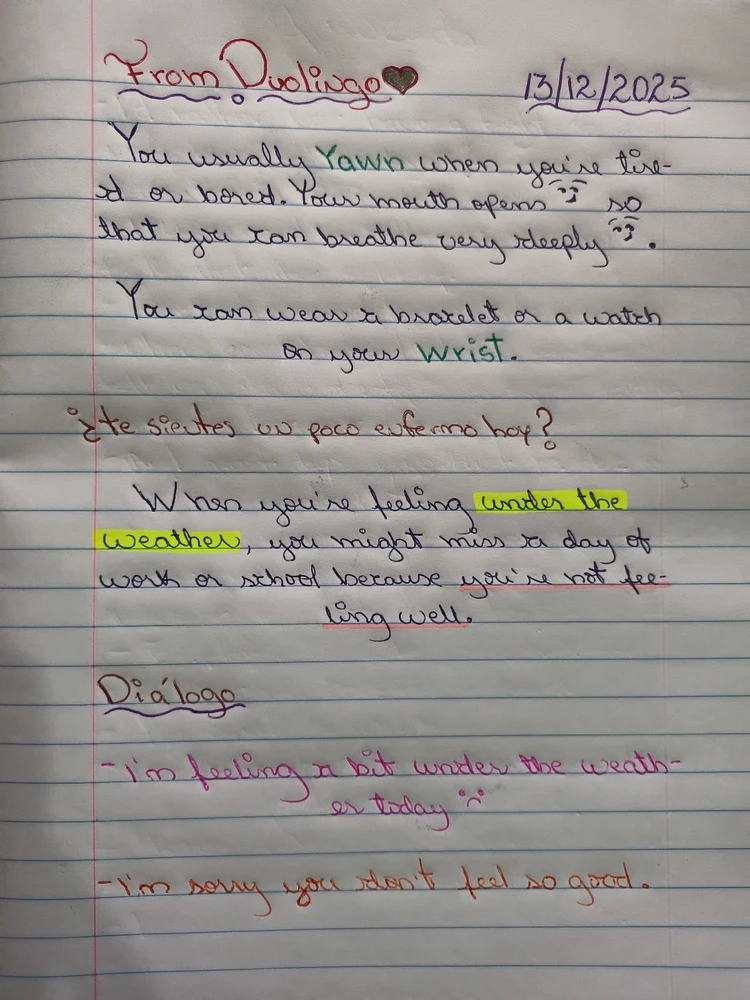 From Duolingo♥ 13/12/2025
You usually Yawn when you're tire-
d or bored. Your mouth opens so
that you can breathe very deeply.
You can wear a bracelet or a watch
on your wrist.
¿te sientes un poco enfermo hoy?
When you're feeling under the
weather, you might miss a day of
work or school because you're not fee-
ling well.
Diálogo
-I'm feeling a bit under the weath-
er today :(
-I'm sorry you don't feel so good.